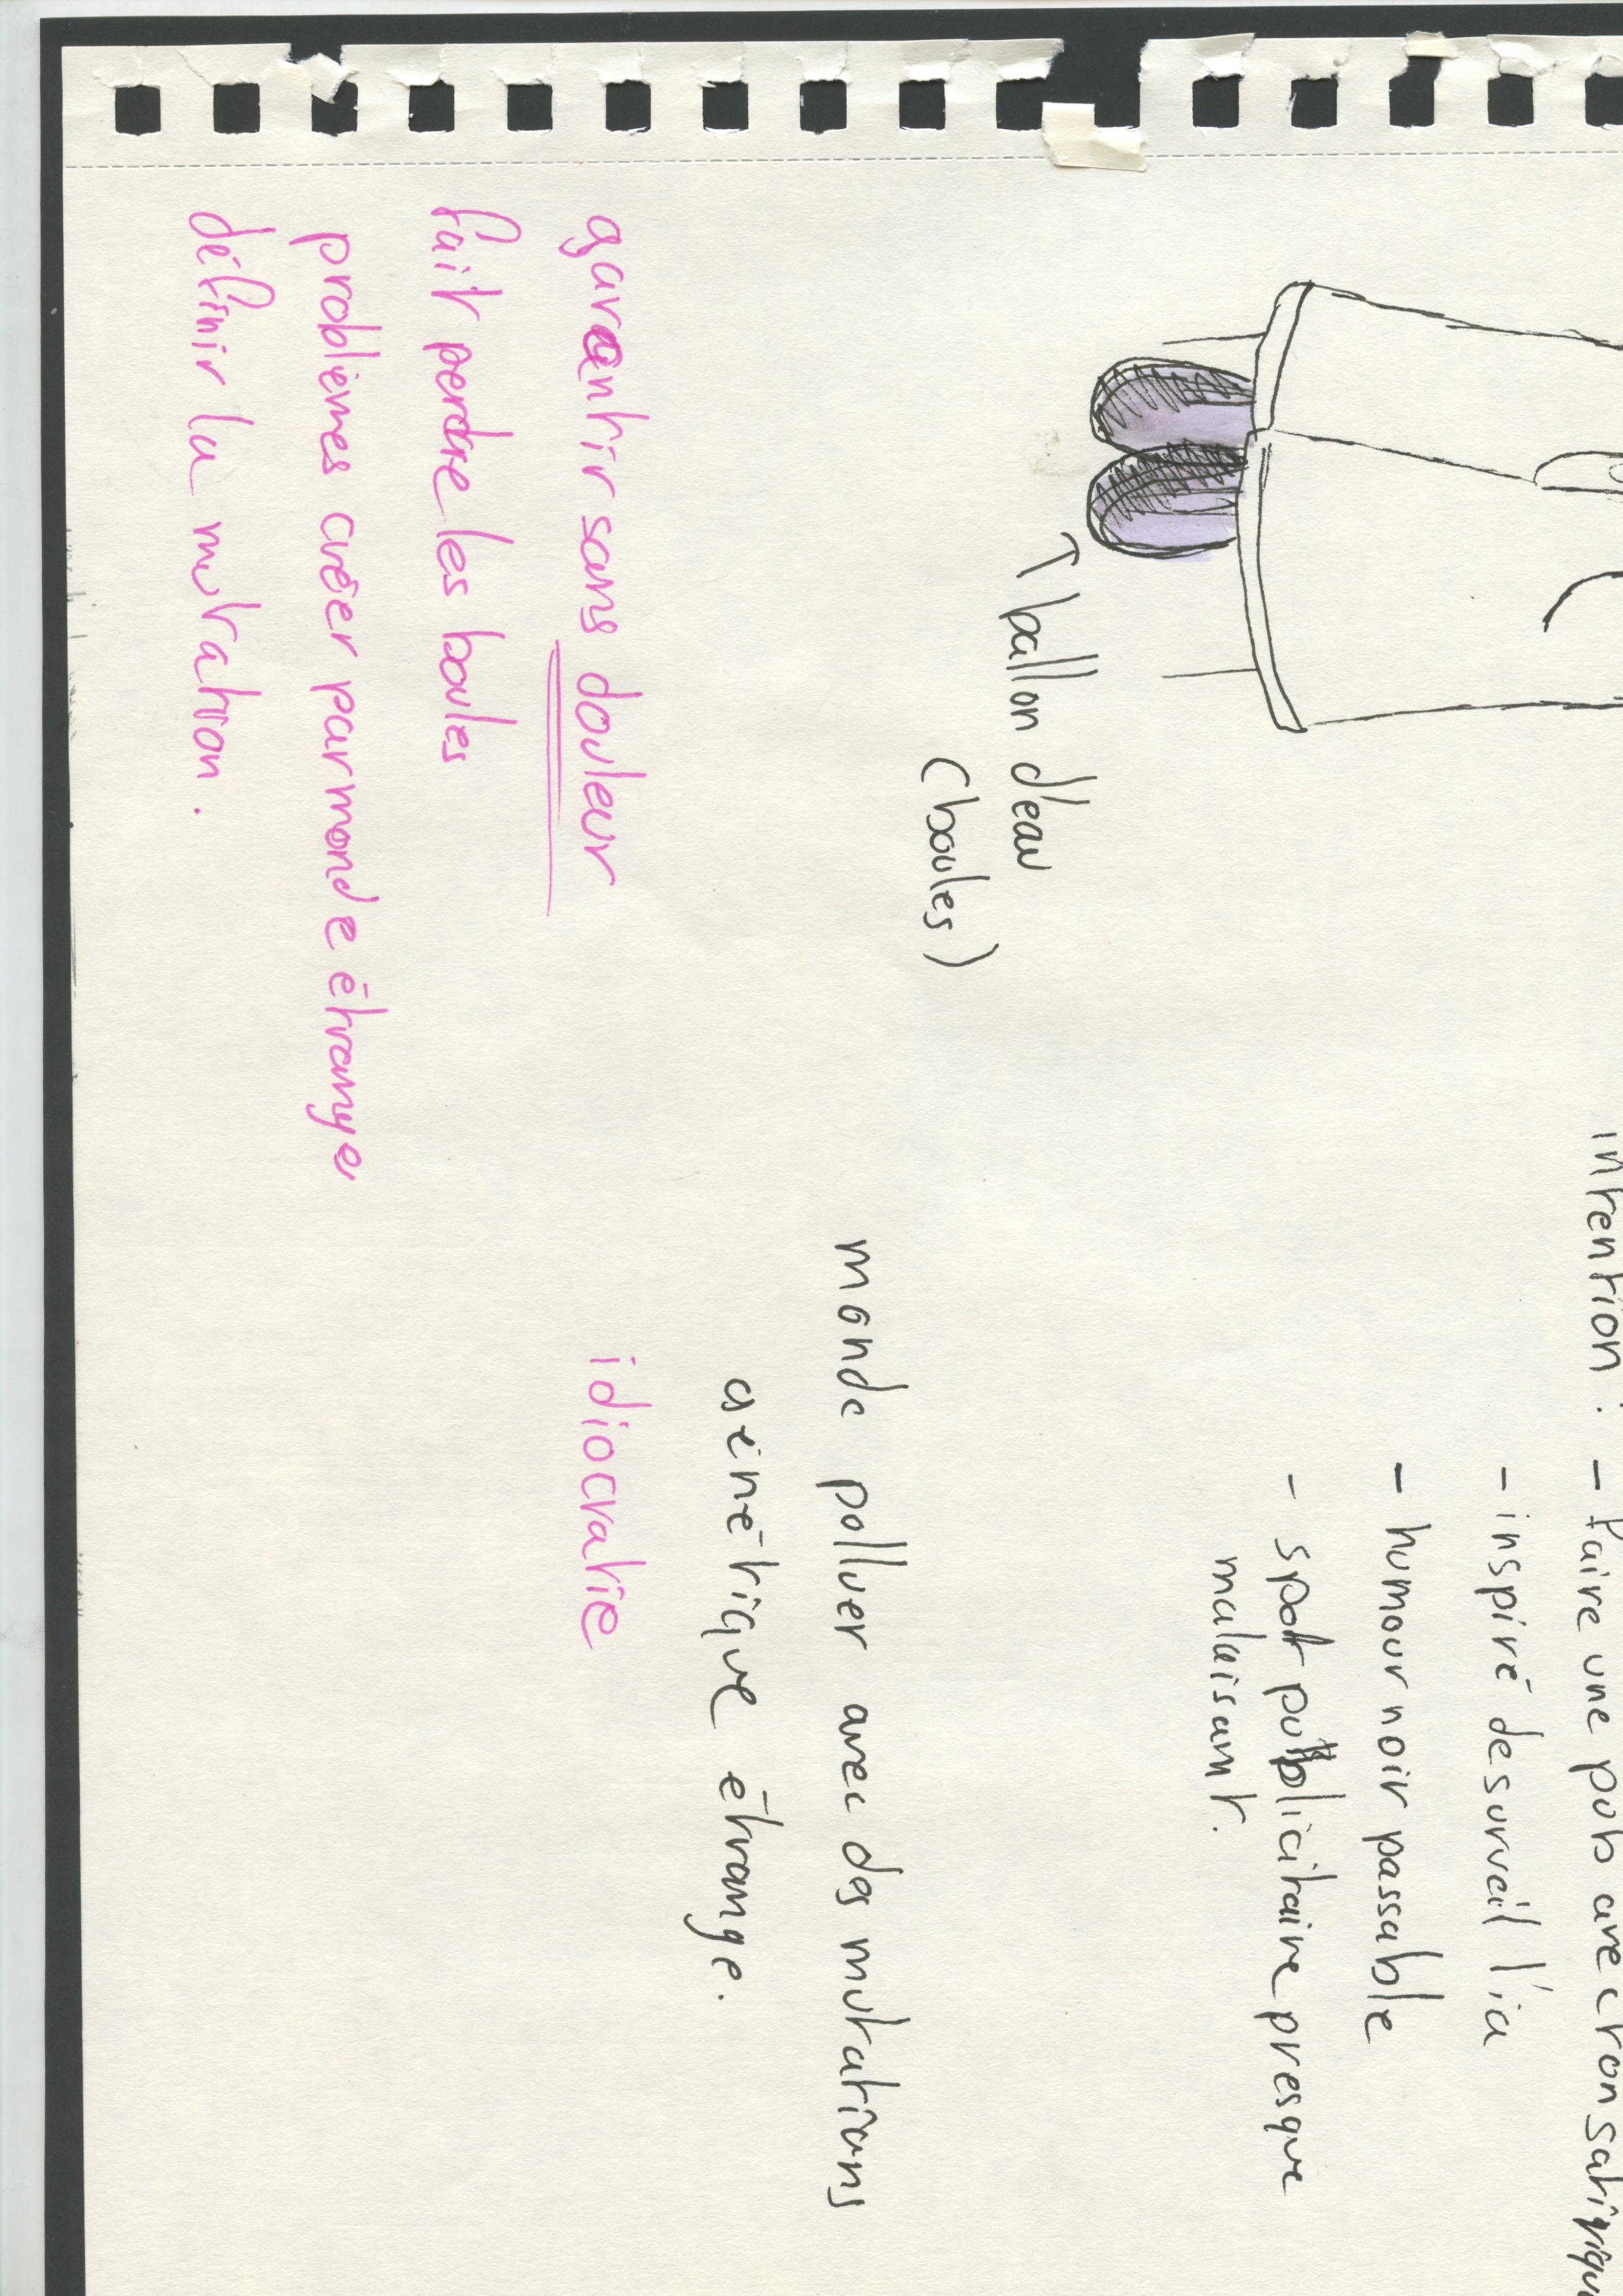 intention : - faire une pub avec ron satirique
- inspiré de surveil l'ia
- humour noir passable
- spot publicitaire presque
malaisant.
ballon d'eau
(boules)
monde polluer avec des mutations
génétique étrange.
garantir sans douleur
idiocratie
fait perdre les boules
problemes créer par monde étrange
définir la mutation.